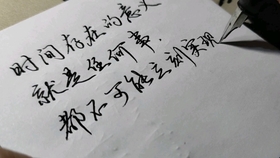 时间存在的意义
就是任何事.
都不可能立刻实现